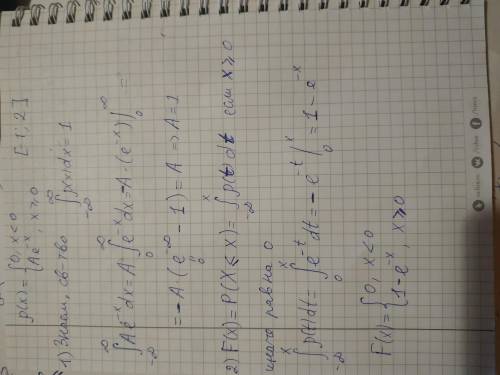 p(x) = { 0, x < 0
Ae^{-x}, x ≥ 0 [-1; 2]
1) Знаем, св-тво ∫_{-∞}^{∞} p(x)dx = 1
∫_{-∞}^{∞} Ae^{-x}dx = A·∫_{0}^{∞} e^{-x}dx = -A·(e^{-x})|_{0}^{∞} =
= -A(e^{-∞} - 1) = A => A = 1
0
2) F(x) = P(X ≤ x) = ∫_{-∞}^{x} p(t)dt если x ≥ 0
иначе равна 0
∫_{-∞}^{x} p(t)dt = ∫_{0}^{x} e^{-t}dt = -e^{-t}|_{0}^{x} = 1 - e^{-x}
F(x) = { 0, x < 0
1 - e^{-x}, x ≥ 0